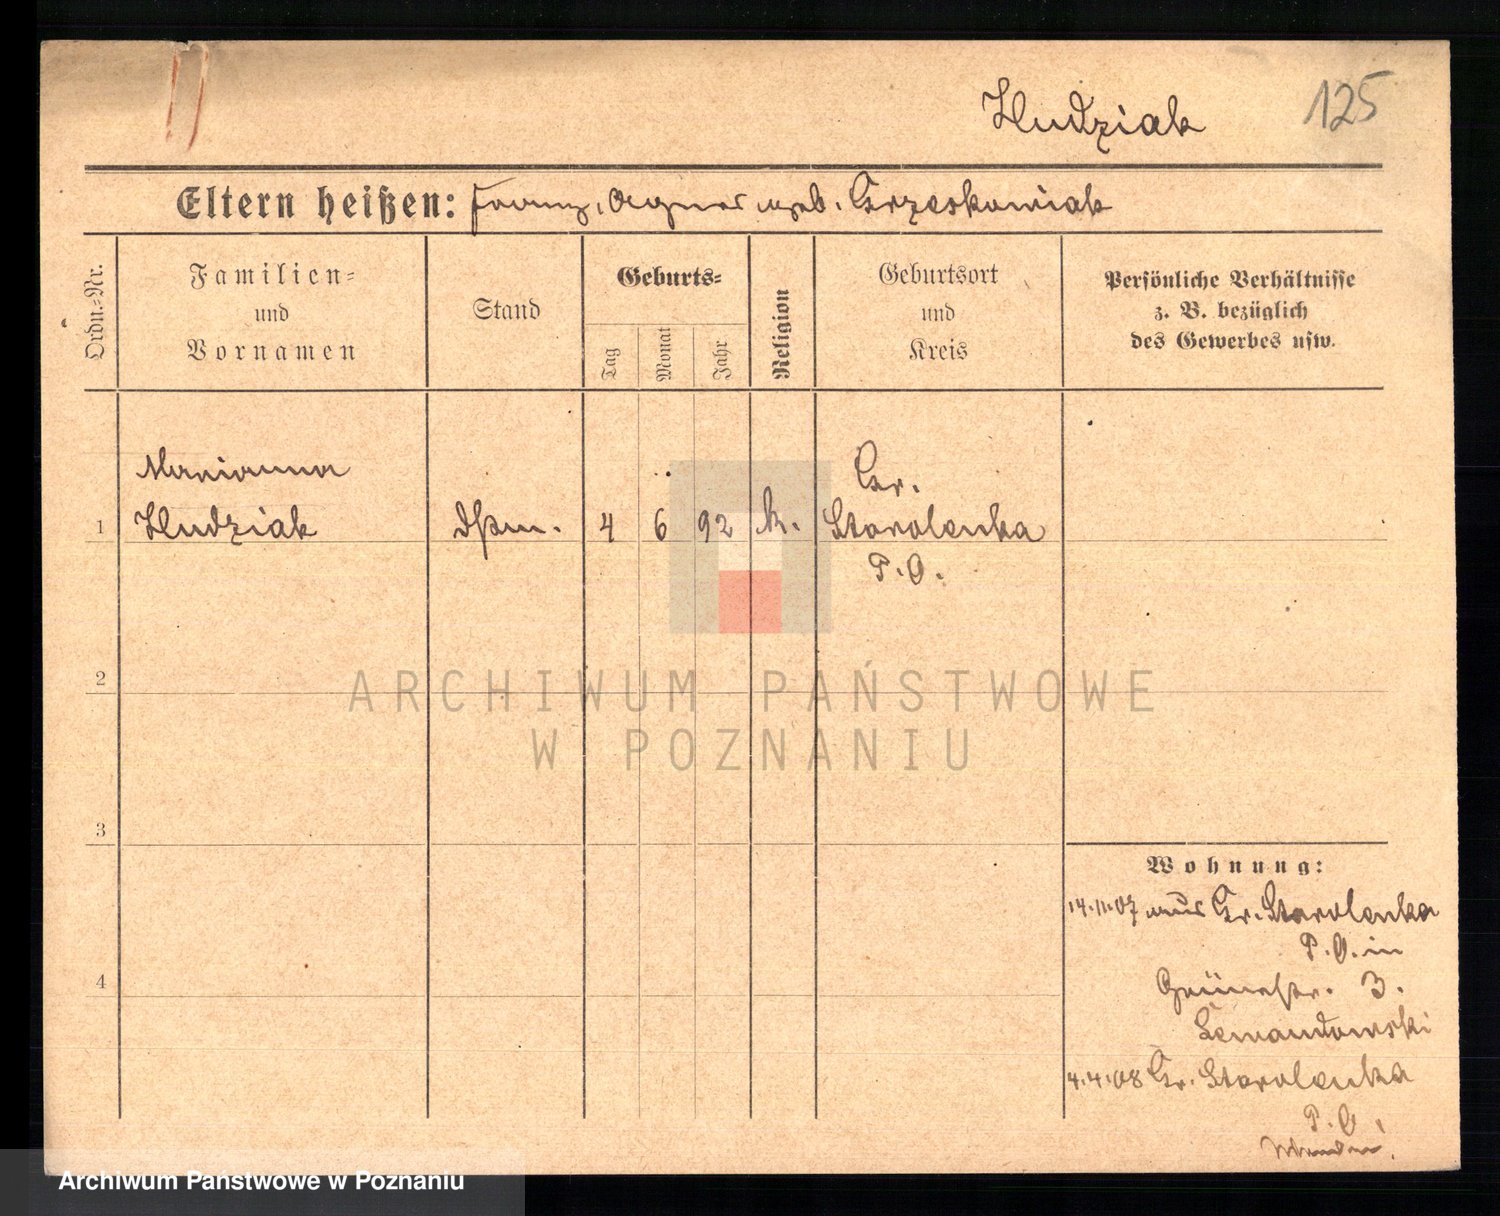 Hudziak 125
Eltern heißen: Franz, Agnes geb. Grzeskowiak
Ordn.-Nr.
Familien-
und
Vornamen
Stand
Geburts-
Tag
Monat
Jahr
Religion
Geburtsort
und
Kreis
Persönliche Verhältnisse
z. B. bezüglich
des Gewerbes usw.
Marianna
Gr.
1 Hudziak dßm. 4 6 92 k. Starolenka
P. O.
2
ARCHIWUM PAŃSTWOWE
W POZNANIU
3
Wohnung:
14.11.07 aus Gr. Starolenka
P. O. in
4
Grünestr. 3.
Lewandowski
4.4.08 Gr. Starolenka
P. O.
Archiwum Państwowe w Poznaniu